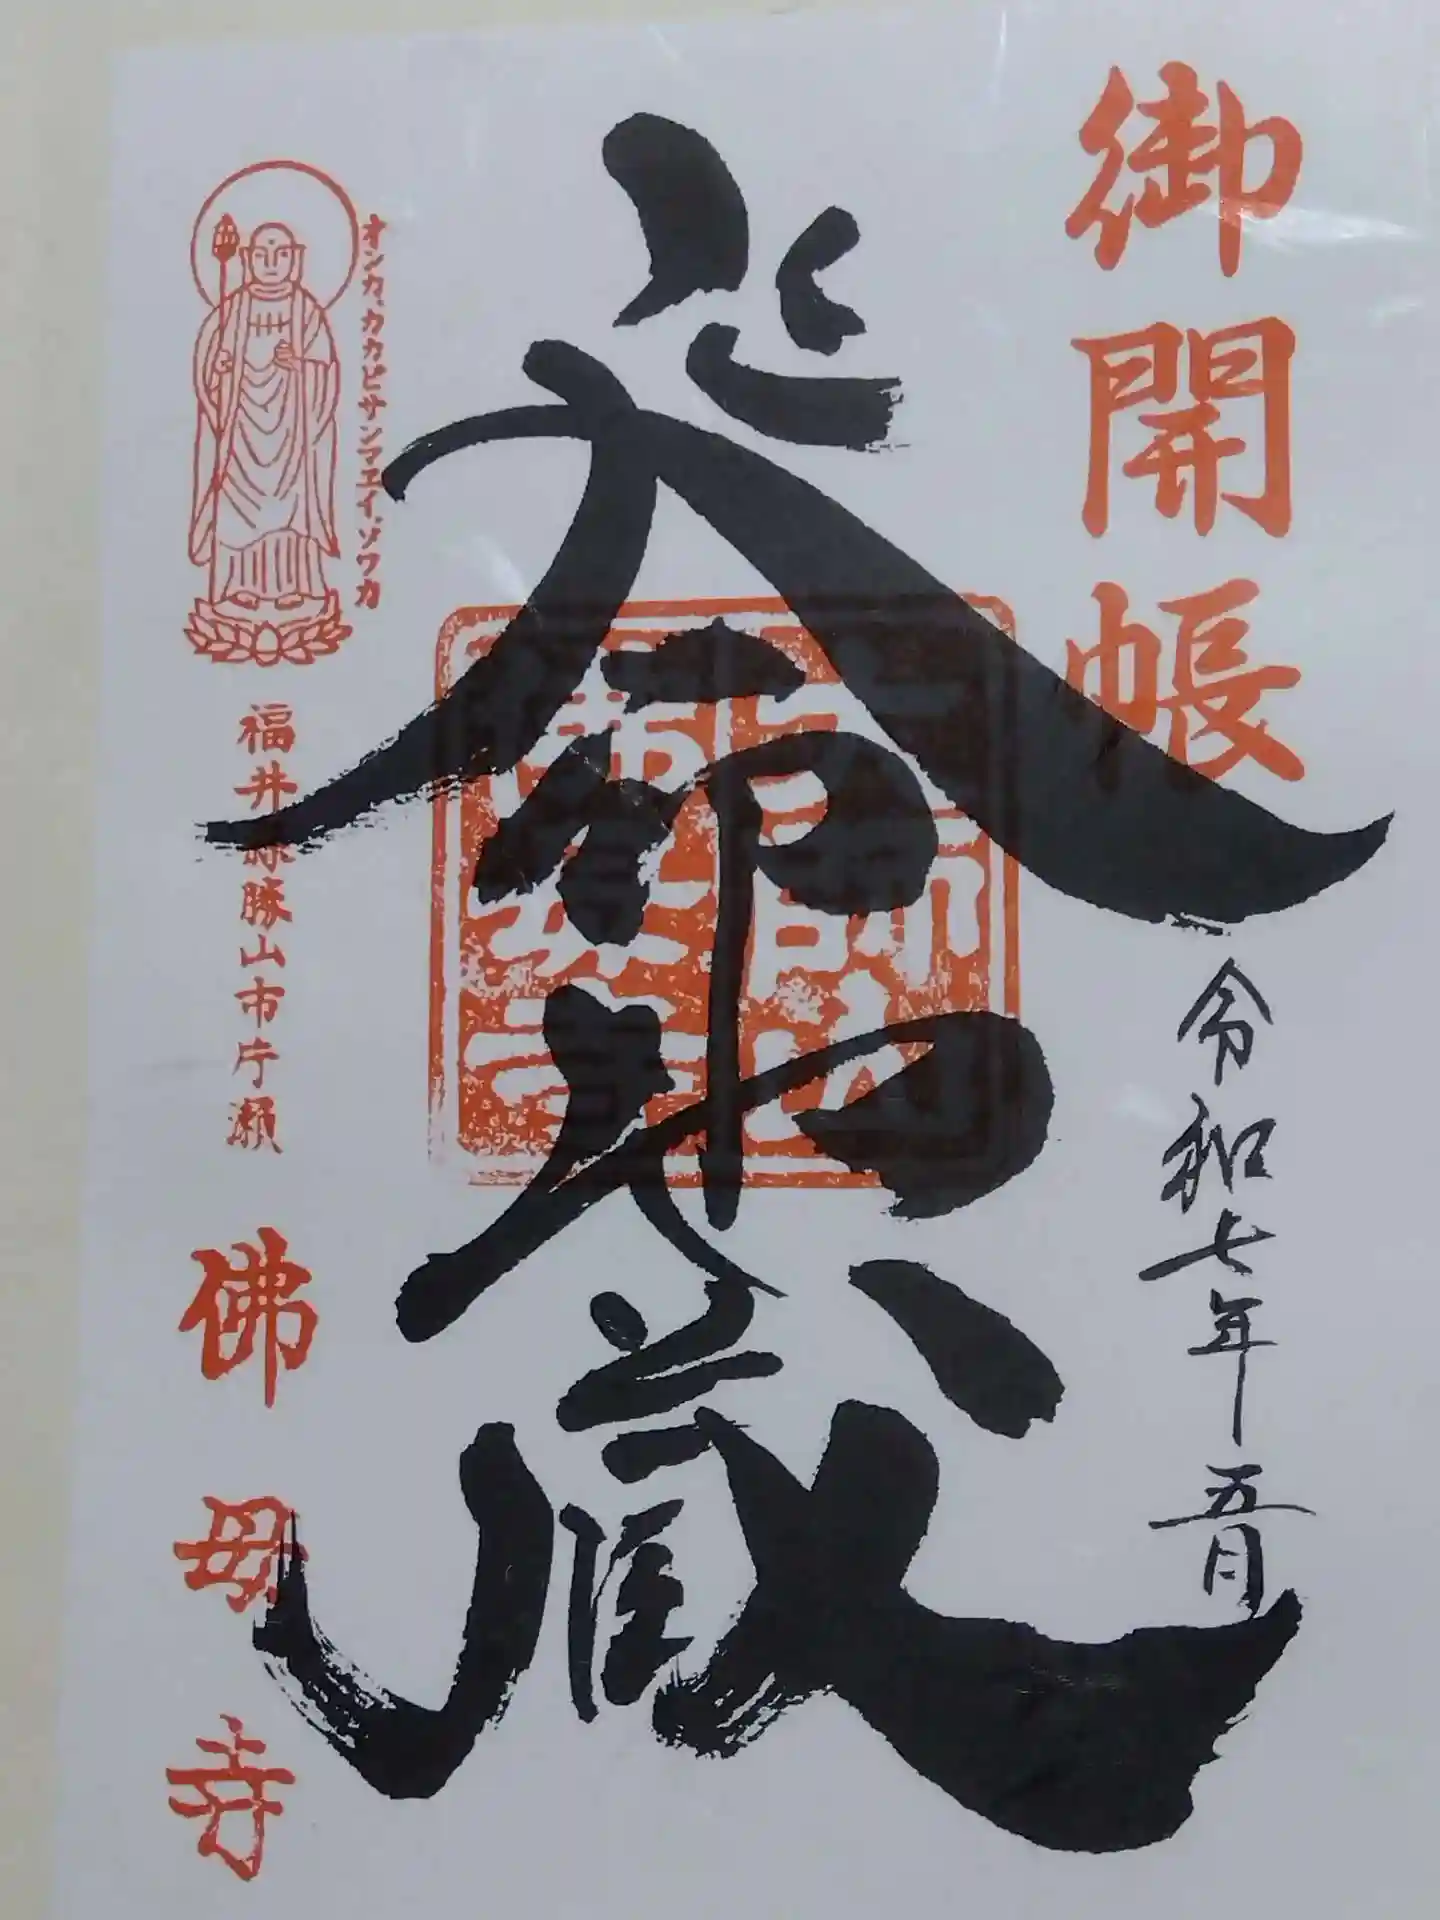 御開帳
令和七年五月
延命地蔵
大師山
佛母寺
オンカ、カカビサンマエイ、ソワカ
福井県勝山市片瀬
佛母寺